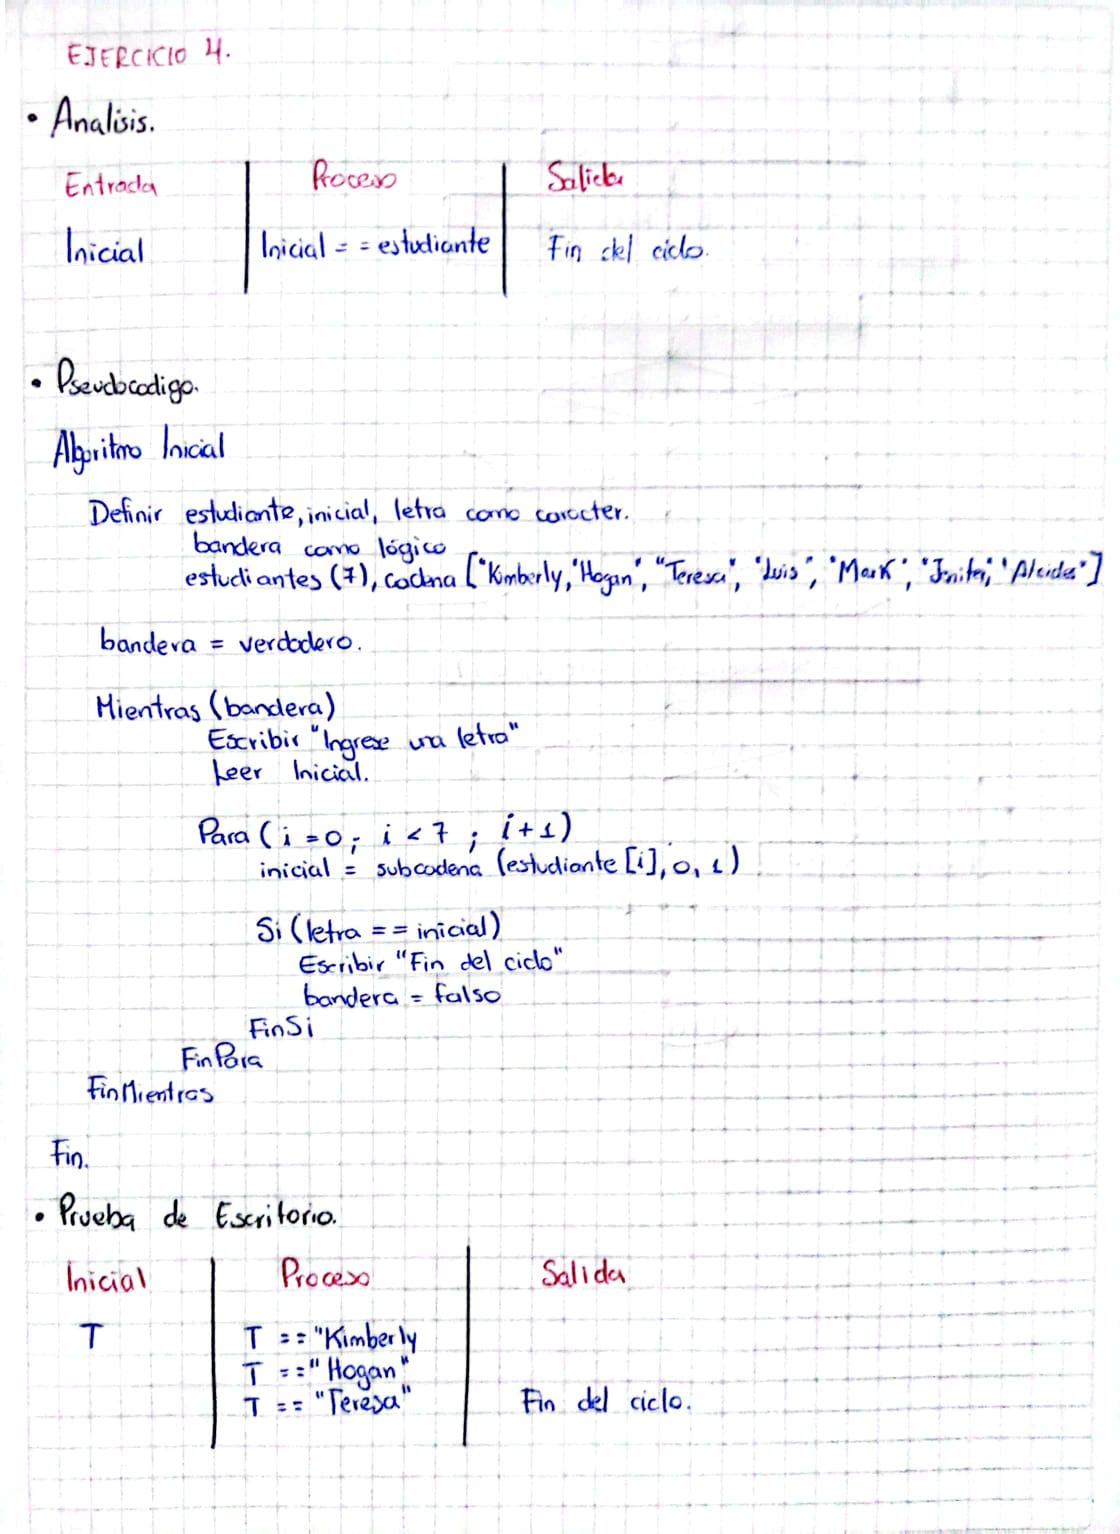 EJERCICIO 4.
• Analisis.
Entrada Proceso Salida
Inicial Inicial = = estudiante Fin del ciclo.
• Pseudocodigo.
Algoritmo Inicial
Definir estudiante, inicial, letra como caracter.
bandera como lógico
estudiantes (7), cadena ["Kimberly, "Hogan", "Teresa", "Luis", "Mark", "Alcides"]
bandera = verdadero.
Mientras (bandera)
Escribir "Ingrese una letra"
Leer Inicial.
Para (i = 0; i < 7 ; i+1)
inicial = subcadena (estudiante [i], 0, 1)
Si (letra == inicial)
Escribir "Fin del ciclo"
bandera = falso
FinSi
FinPara
FinMientras
Fin.
• Prueba de Escritorio.
Inicial Proceso Salida
T T == "Kimberly
T == "Hogan"
T == "Teresa" Fin del ciclo.